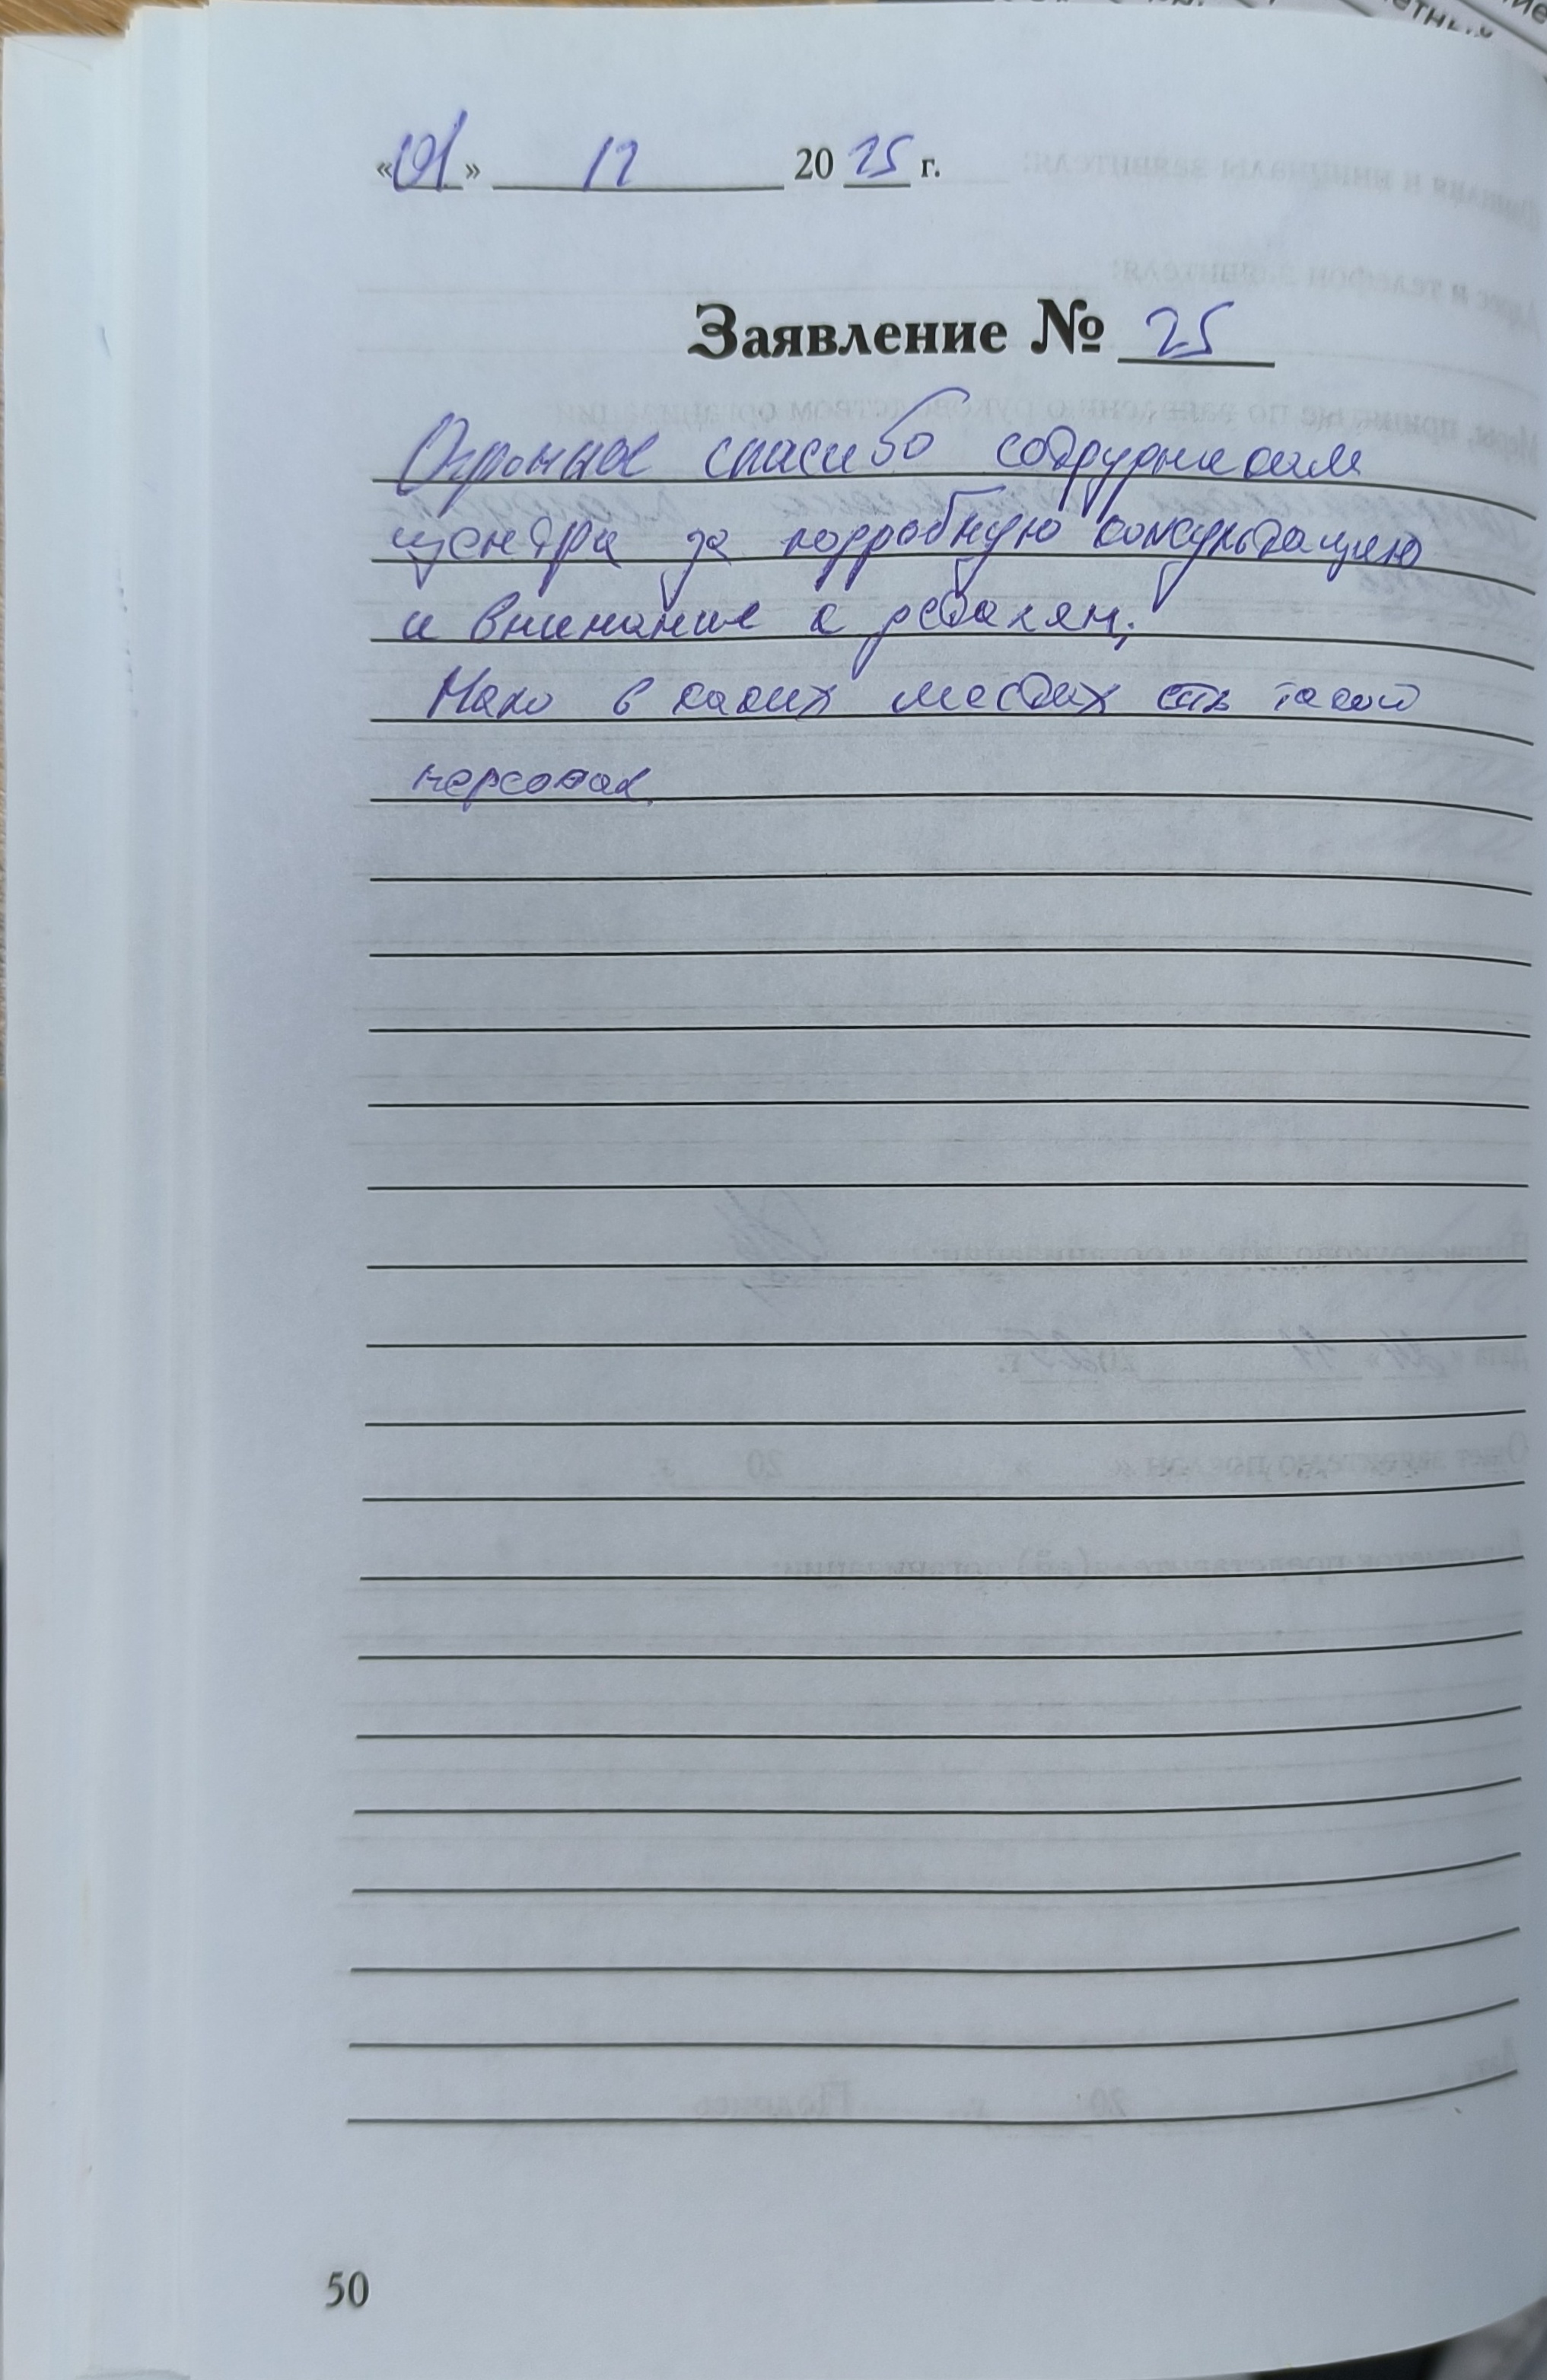 «01» 12 2025 г.
Заявление № 25
Огромное спасибо сотрудникам
центра за подробную консультацию
и внимание к деталям.
Мало в каких местах есть такой
персонал.
50